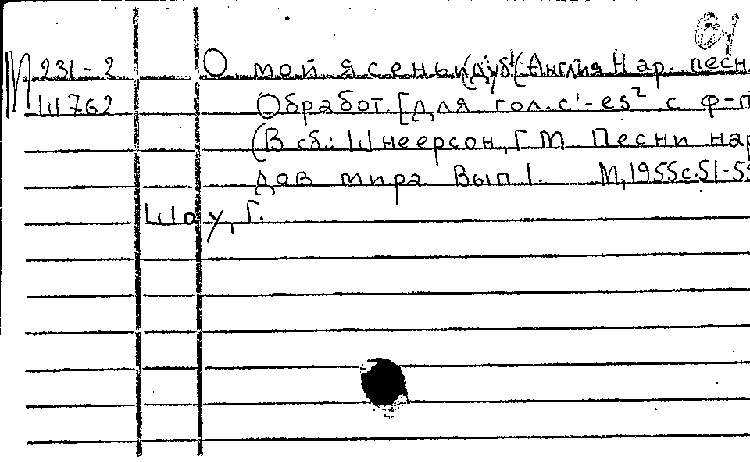 М 231-2 О мой ясень и дуб! (Англия Нар. песн
Ш762 Обработ. [для гол. c¹-es² с ф-п
(В сб.: Шнеерсон, Г М Песни нар
дов мира Вып 1. М, 1955 с. 51-5
Шоу, Г.